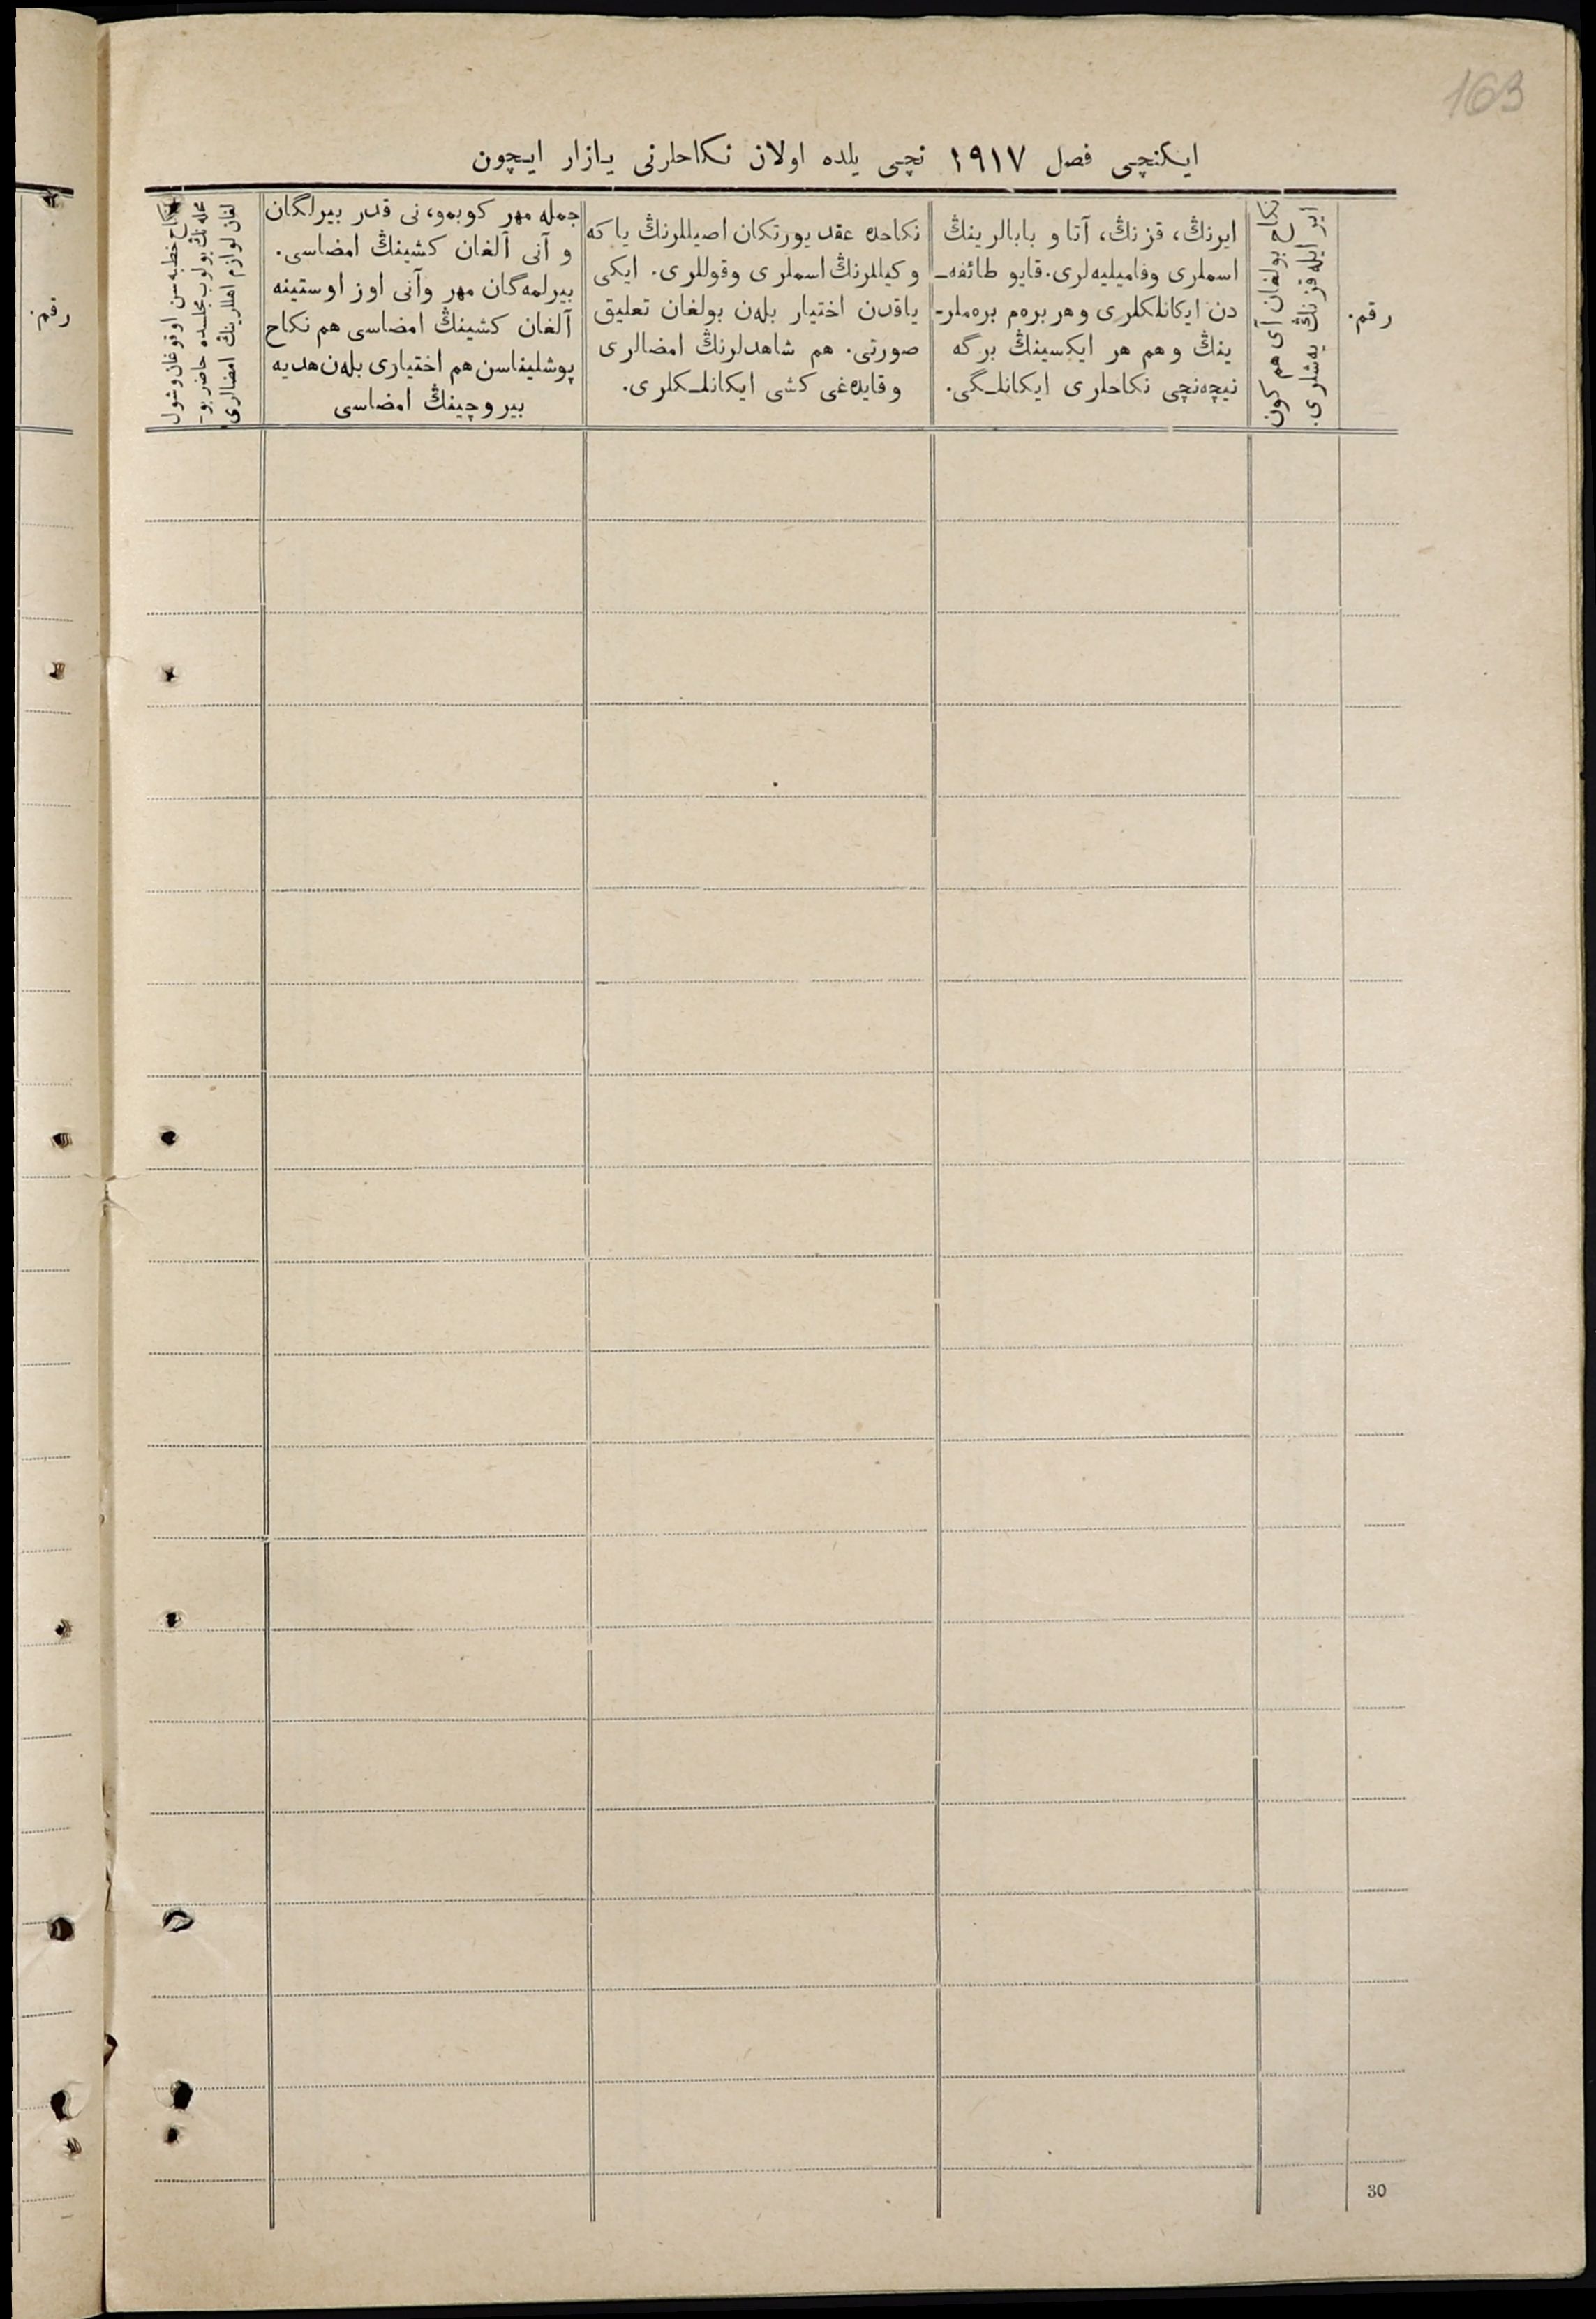 163
ایکنچی فصل ١٩١٧ نچی یلده اولان نکاحلرنی یازار ایچون
رقم.
ایر ایله قزنڭ یه‌شلری.
نکاح بولغان آی هم کون
ایرنڭ، قزنڭ، آتا و بابالرینڭ
اسملری وفامیلیه‌لری. قایو طائفه‌ـ
دن ایکانلکلری وهر بره‌م بره‌ملرـ
ینڭ و هم هر ایکسینڭ برگه
نیچه‌نچی نکاحلری ایکانلـگی.
نکاحده عقد یورتکان اصیللرنڭ یا که
وکیللرنڭ اسملری وقوللری. ایکی
یاقدن اختیار بله‌ن بولغان تعلیق
صورتی. هم شاهدلرنڭ امضالری
وقایده‌غی کشی ایکانلـکلری.
جمله مهر کوبمو، نی قدر بیرلگان
و آنی آلغان کشینڭ امضاسی.
بیرلمه‌گان مهر وآنی اوز اوستینه
آلغان کشینڭ امضاسی هم نکاح
پوشلیناسن هم اختیاری بله‌ن هدیه
بیروچینڭ امضاسی
نکاح خطبه‌سن اوقوغان وشول
محله‌نڭ بولوب مجلسده حاضر بوـ
لغان لوازم اهللرینڭ امضالری
رقم.
30